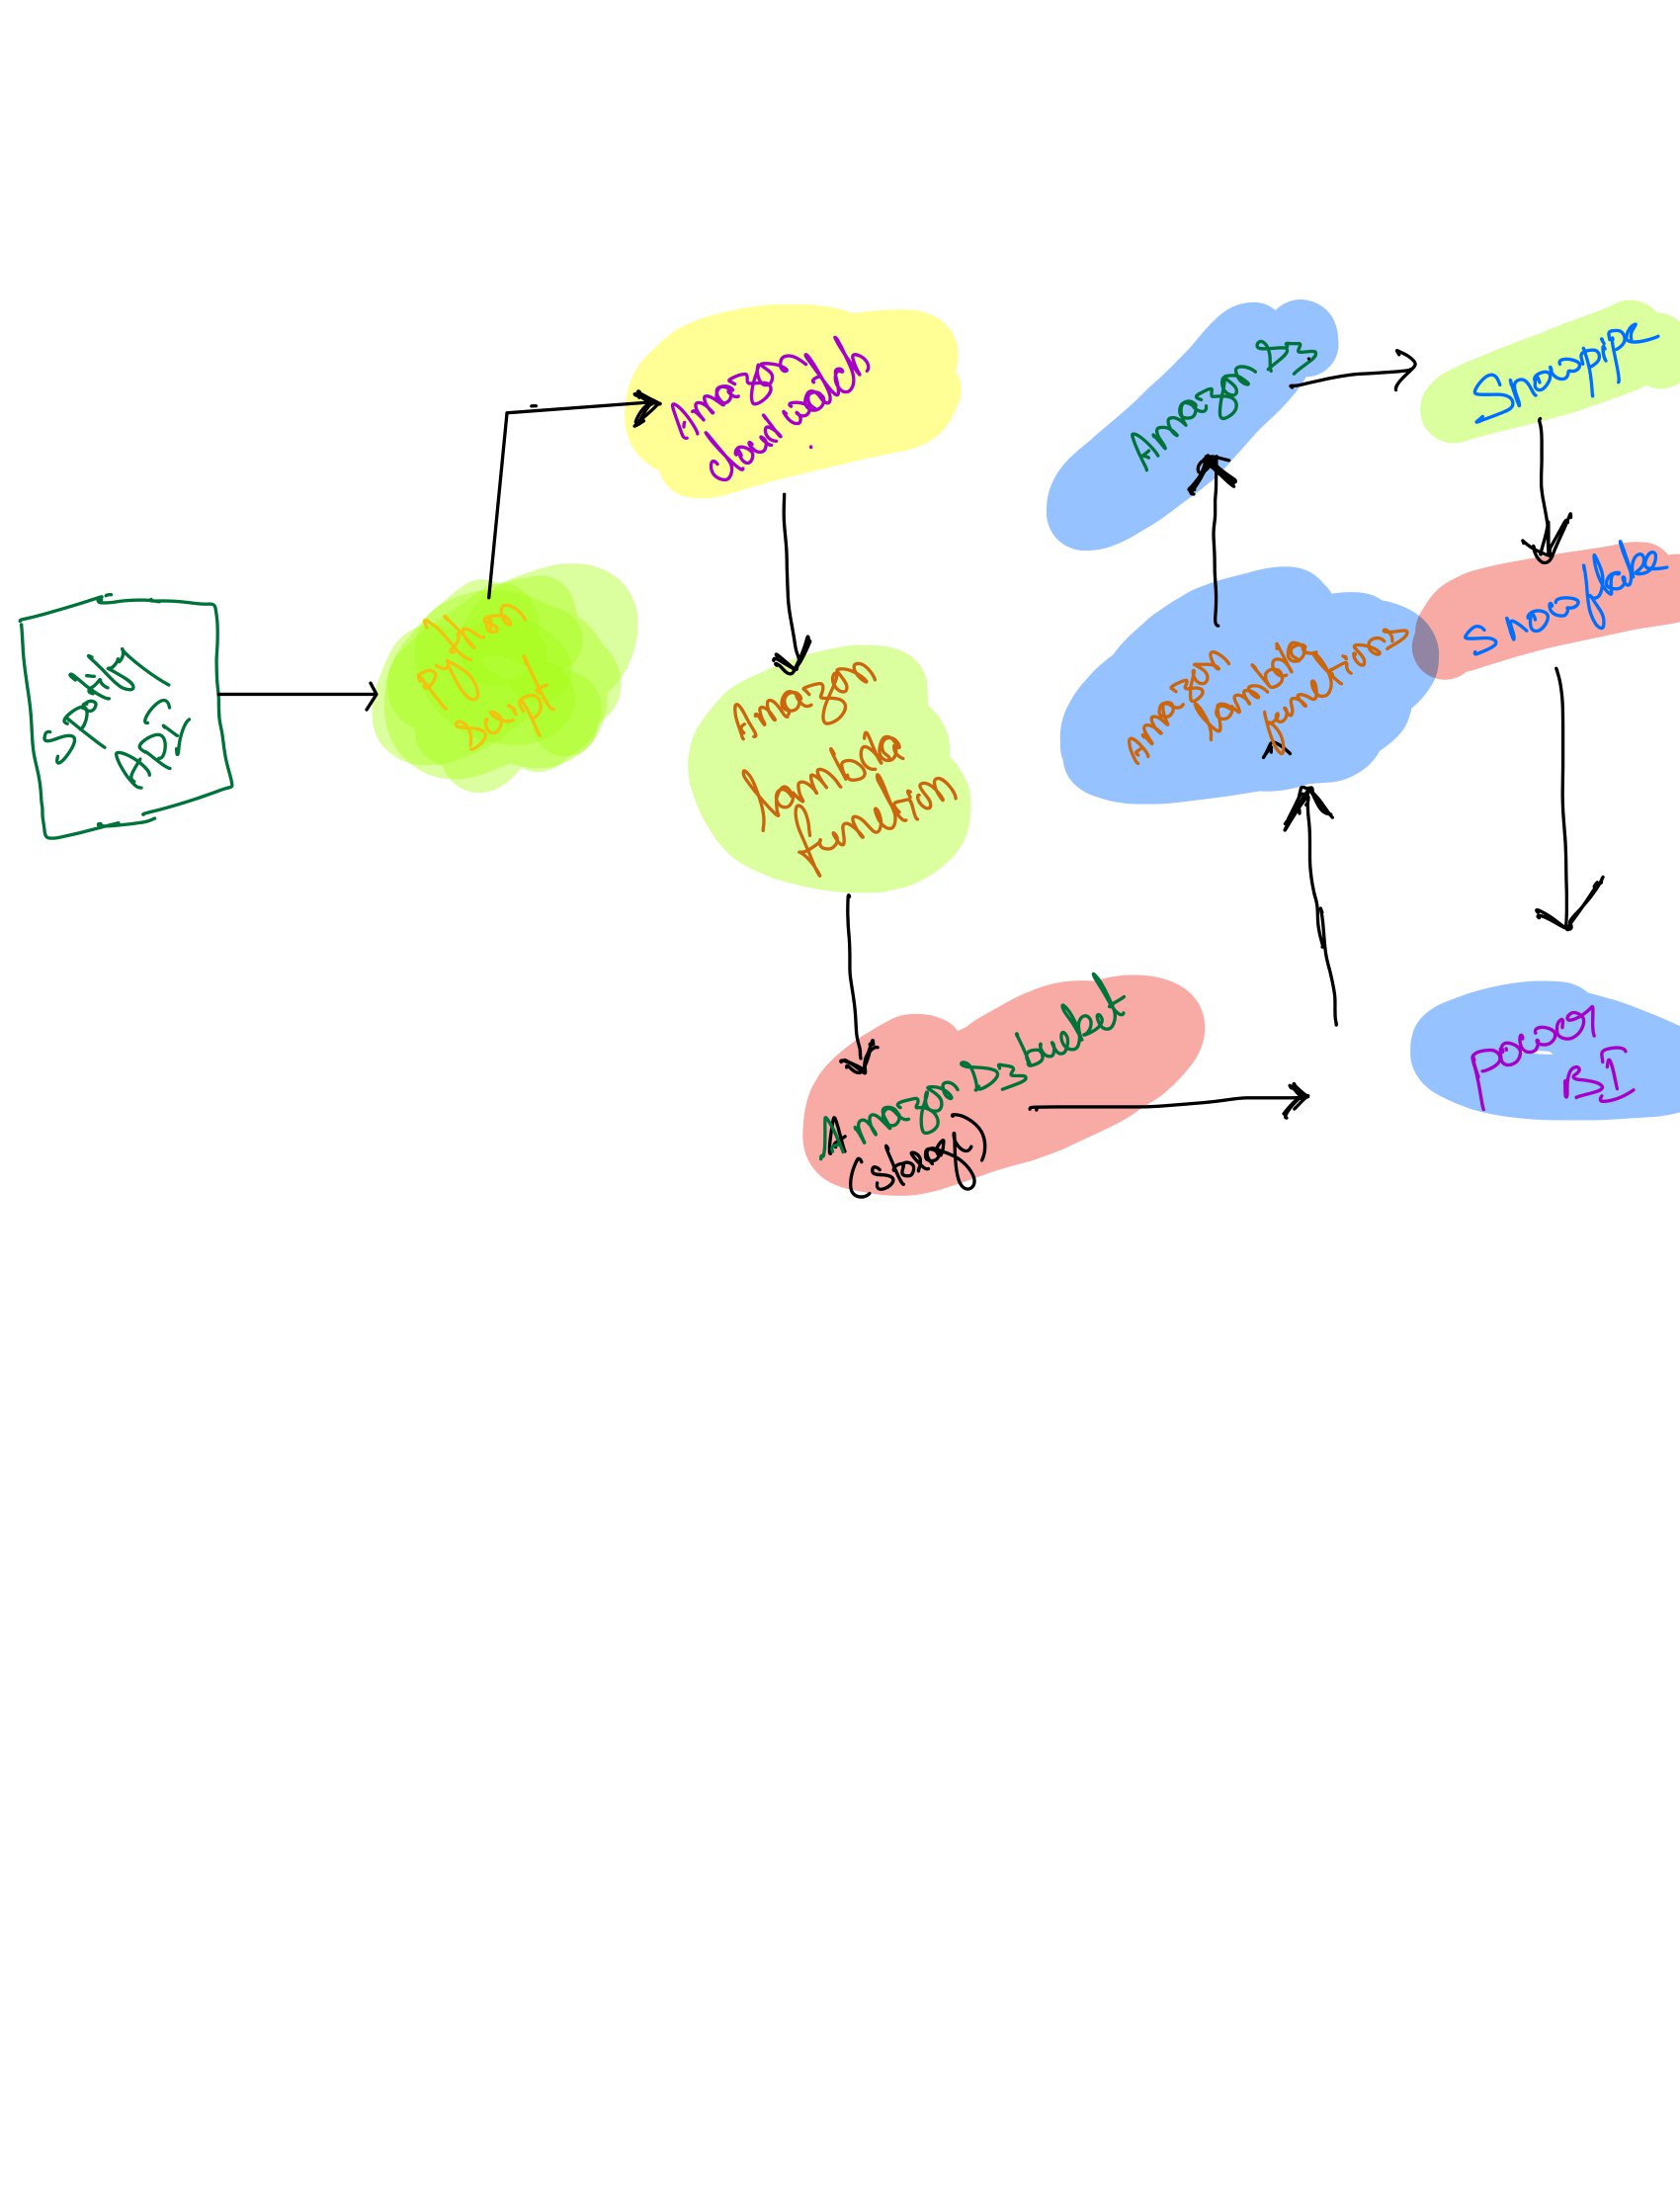 Spotify
API
Python
Script
Amazon
cloud watch
Amazon
Lambda
function
Amazon S3 bucket
(storage)
Amazon
Lambda
functions
Amazon S3
Snowpipe
Snowflake
power
BI